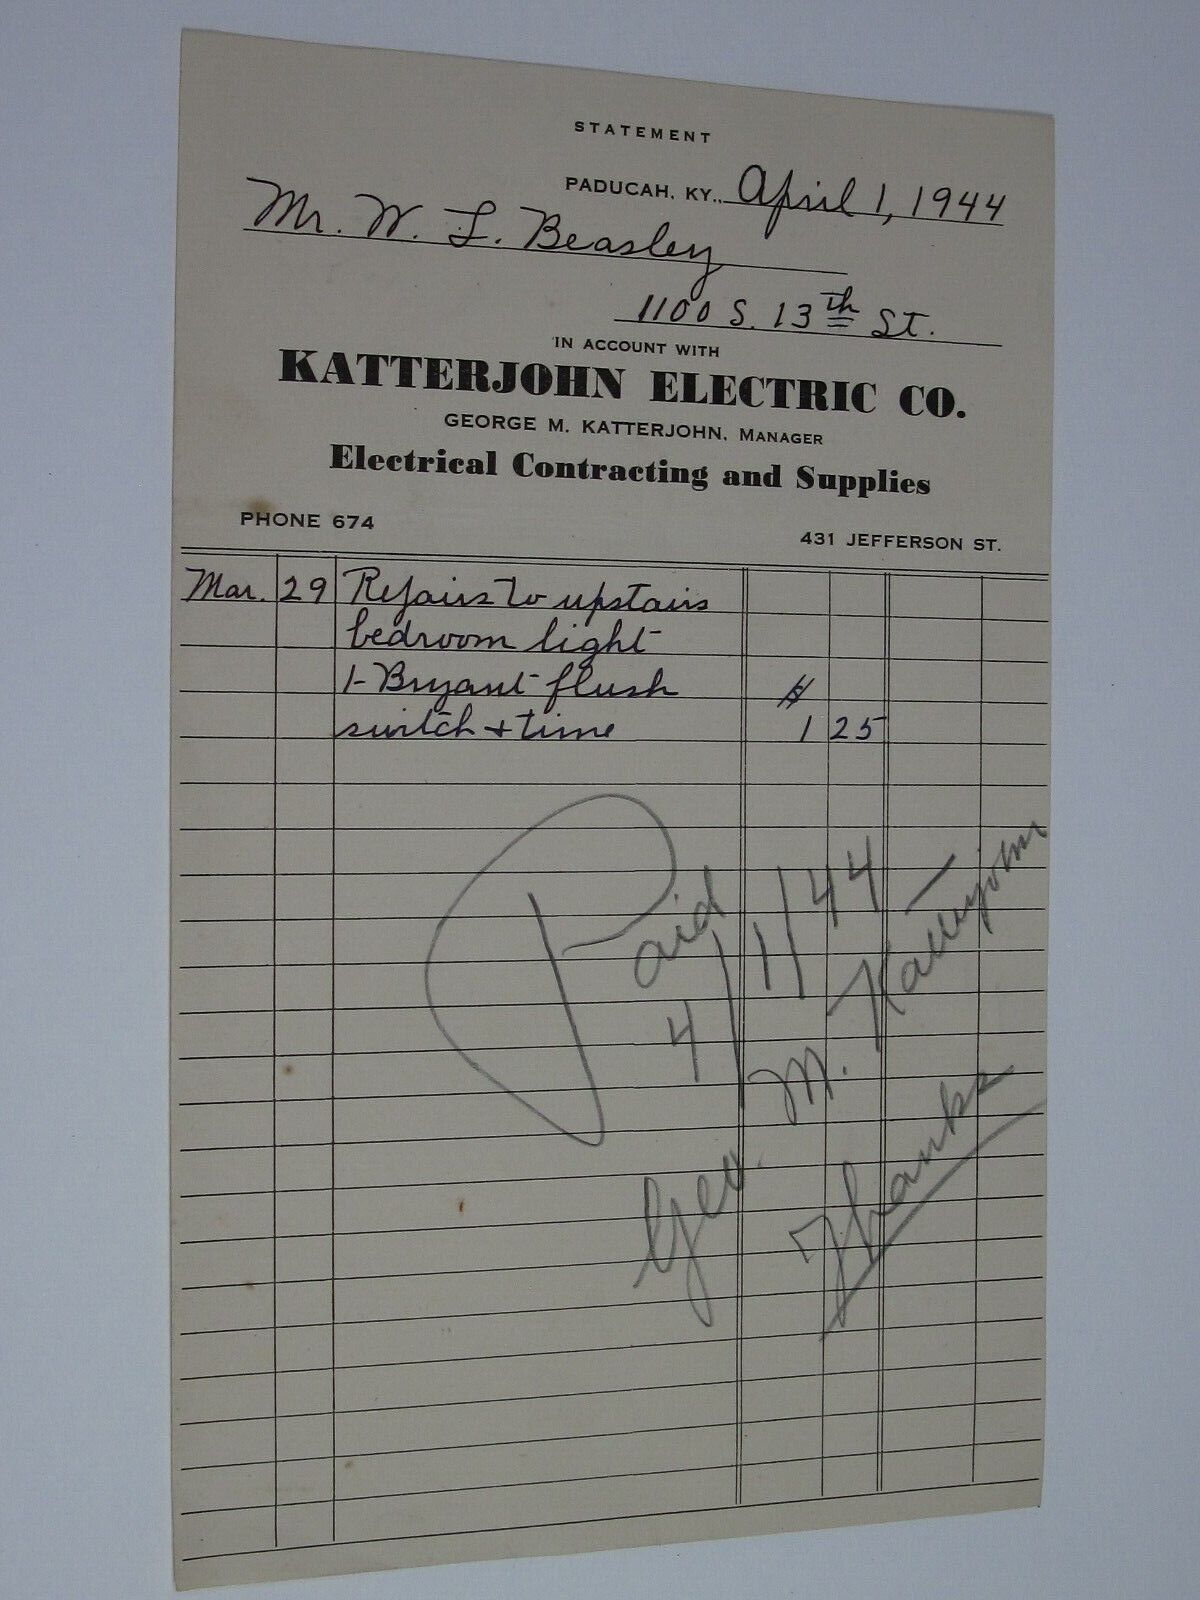 STATEMENT
PADUCAH, KY., April 1, 1944
Mr. W. L. Beasley
1100 S. 13th St.
IN ACCOUNT WITH
KATTERJOHN ELECTRIC CO.
GEORGE M. KATTERJOHN, MANAGER
Electrical Contracting and Supplies
PHONE 674
431 JEFFERSON ST.
Mar. 29 Repairs to upstairs
bedroom light
1- Bryant flush $
switch + time 1 25
Paid
4/1/44
Geo. M. Katterjohn
Thanks